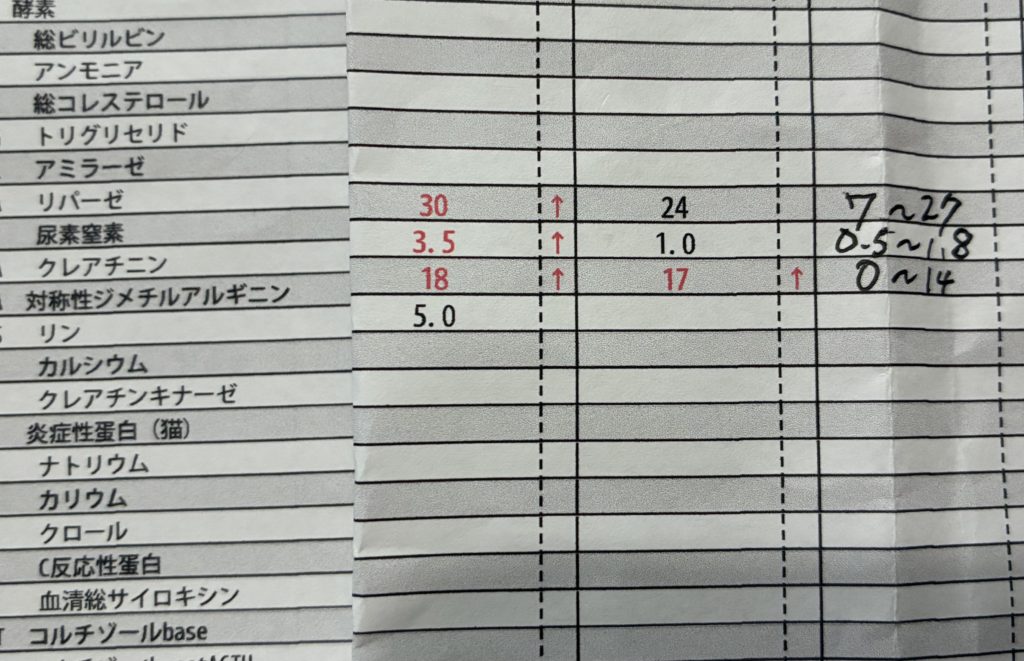 酵素
総ビリルビン
アンモニア
総コレステロール
トリグリセリド
アミラーゼ
リパーゼ 30 ↑ 24 7~27
尿素窒素 3.5 ↑ 1.0 0.5~1.8
クレアチニン 18 ↑ 17 ↑ 0~14
対称性ジメチルアルギニン 5.0
リン
カルシウム
クレアチンキナーゼ
炎症性蛋白（猫）
ナトリウム
カリウム
クロール
C反応性蛋白
血清総サイロキシン
コルチゾールbase